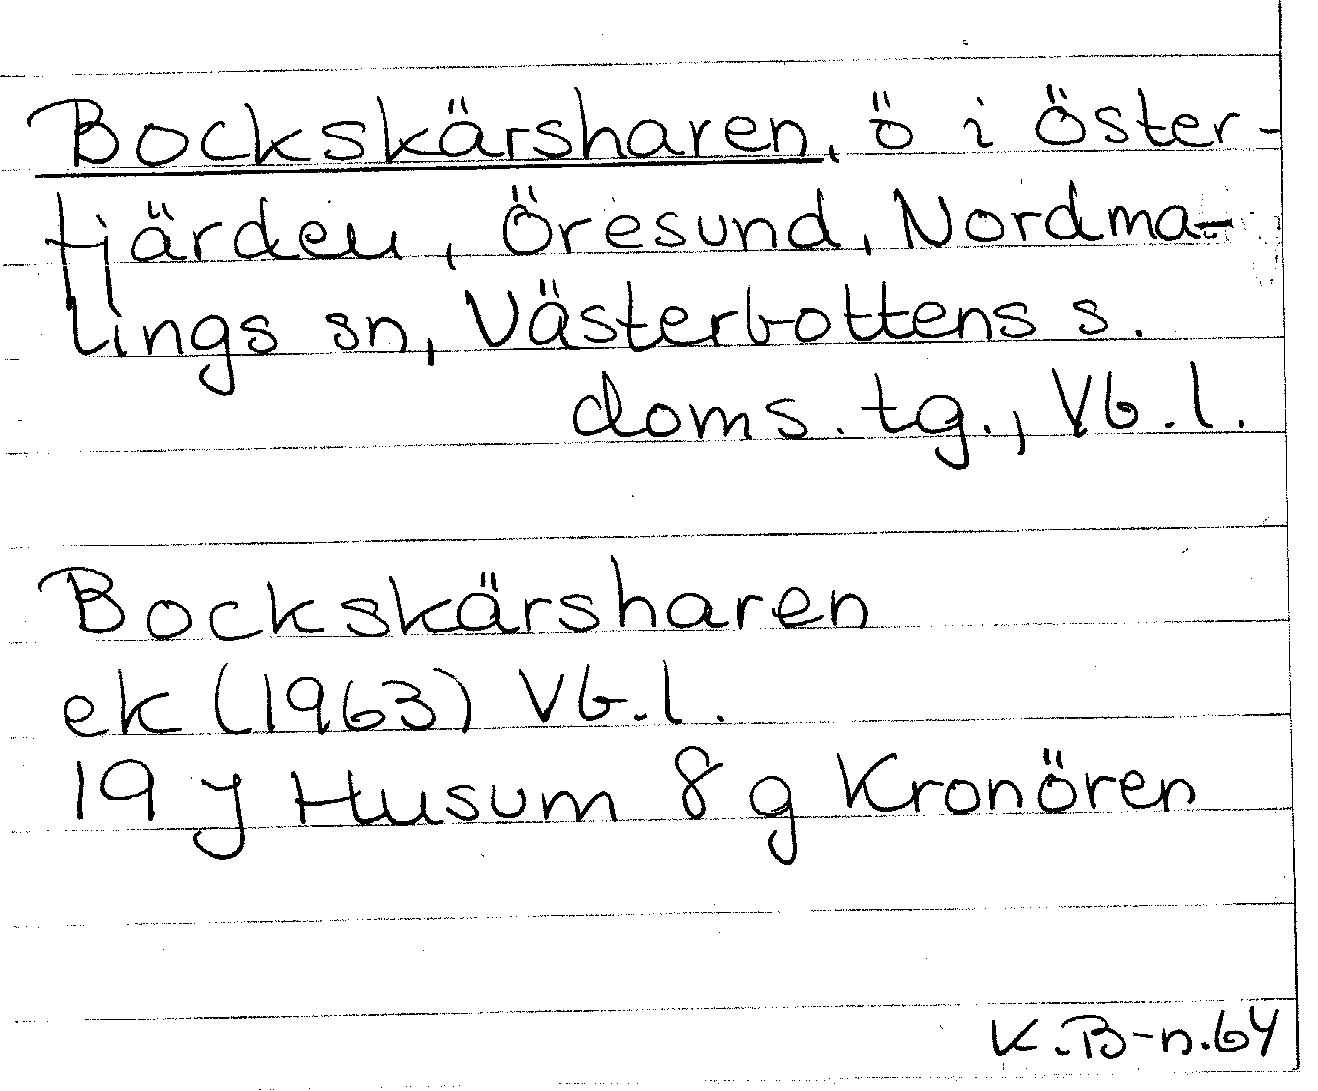 Bockskärsharen, ö i Öster-
fjärden, Öresund, Nordma-
lings sn, Västerbottens s.
doms. tg., Vb. l.
Bockskärsharen
ek (1963) Vb. l.
19 J Husum 8 g Kronören
K. B-n. 64